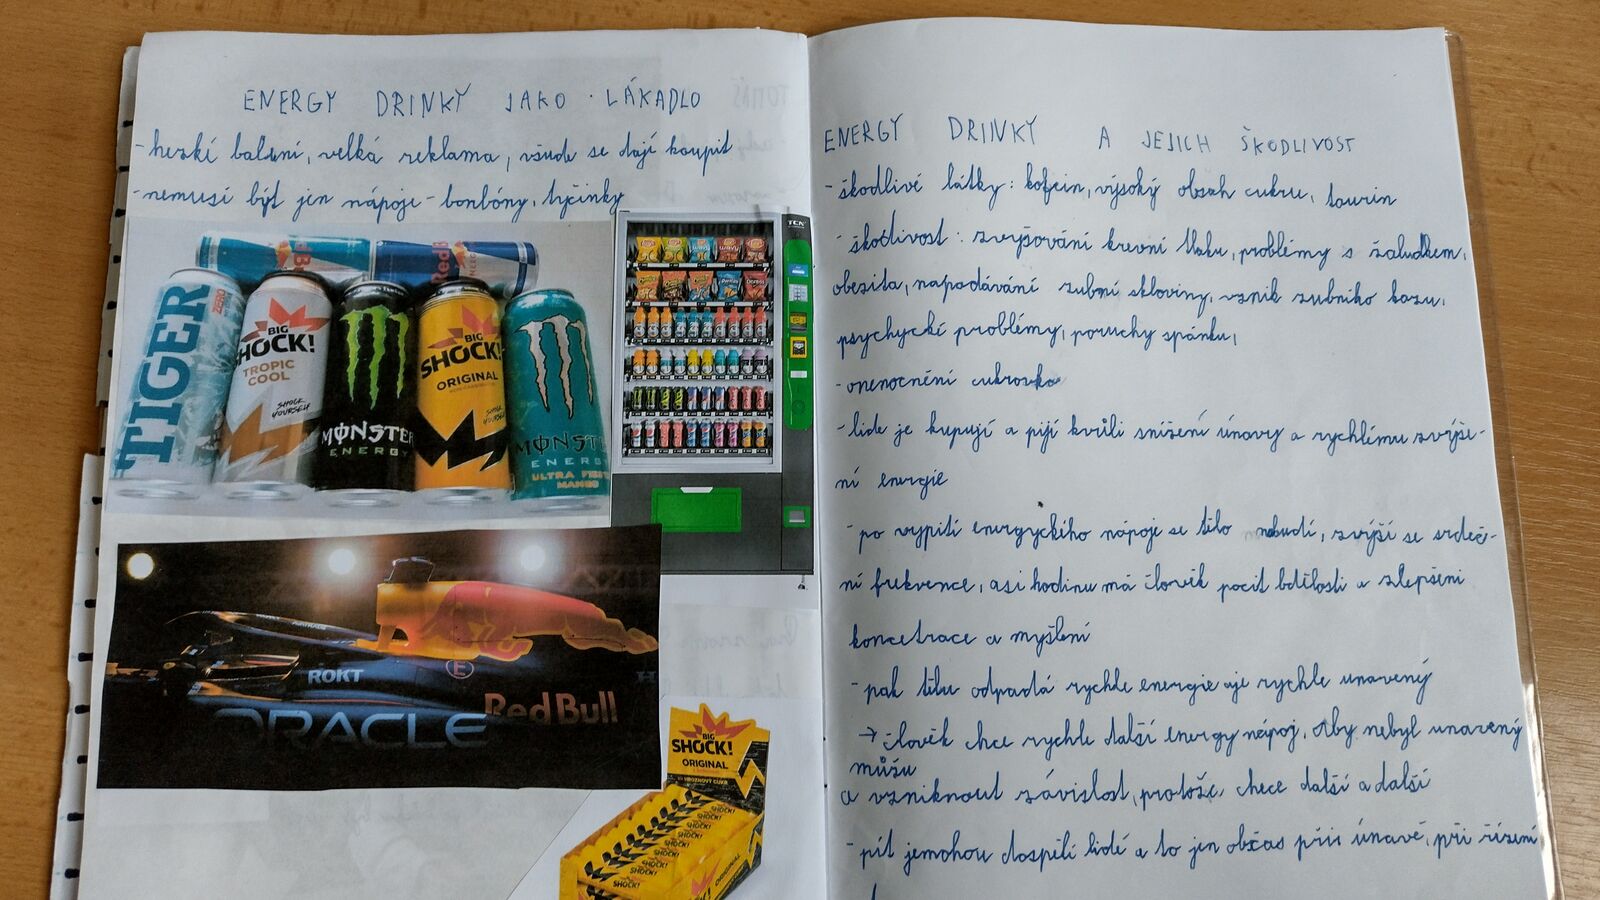 ENERGY DRINKY JAKO LÁKADLO
- heskí balení, velká reklama, všude se dají koupit
- nemusí být jen nápoje - bonbóny, tyčinky
TCN
TIGER
ZERO
BIG
SHOCK!
TROPIC
COOL
SHOCK
YOURSELF
MONSTER
ENERGY
BIG
SHOCK!
ORIGINAL
SHOCK
YOURSELF
MONSTER
ENERGY
ULTRA
MANGO
ROKT
Red Bull
ORACLE
BIG
SHOCK!
ORIGINAL
HROZNOVÝ CUKR
SHOCK!
SHOCK!
SHOCK!
SHOCK!
SHOCK!
ORIGINAL
ENERGY DRINKY A JEJICH ŠKODLIVOST
- škodlivé látky: kofein, výsoký obsah cukru, taurin
- škodlivost: zvyšování krevní tlaku, problémy s žaludkem,
obezita, napadávání zubní skloviny, vznik zubního kazu,
psychyckí problémy, poruchy spánku,
- onenocnění cukrovka
- lide je kupují a pijí kvůli snížení únavy a rychlému zvýše-
ní energie
- po vypití energyckého nápoje se tělo nabudí, zvýší se srdeč-
ní frekvence, asi hodinu má človék pocit bdělosti a zlepšení
koncetrace a myšlení
- pak tělu odpadá rychle energie a je rychle unavený
→ človék chce rychle další energy nápoj, aby nebyl unavený
můšu
a vzniknout závislost, protože chece další a další
- pít jemohou dospělí lidé a to jen občas při únavě, při řízení